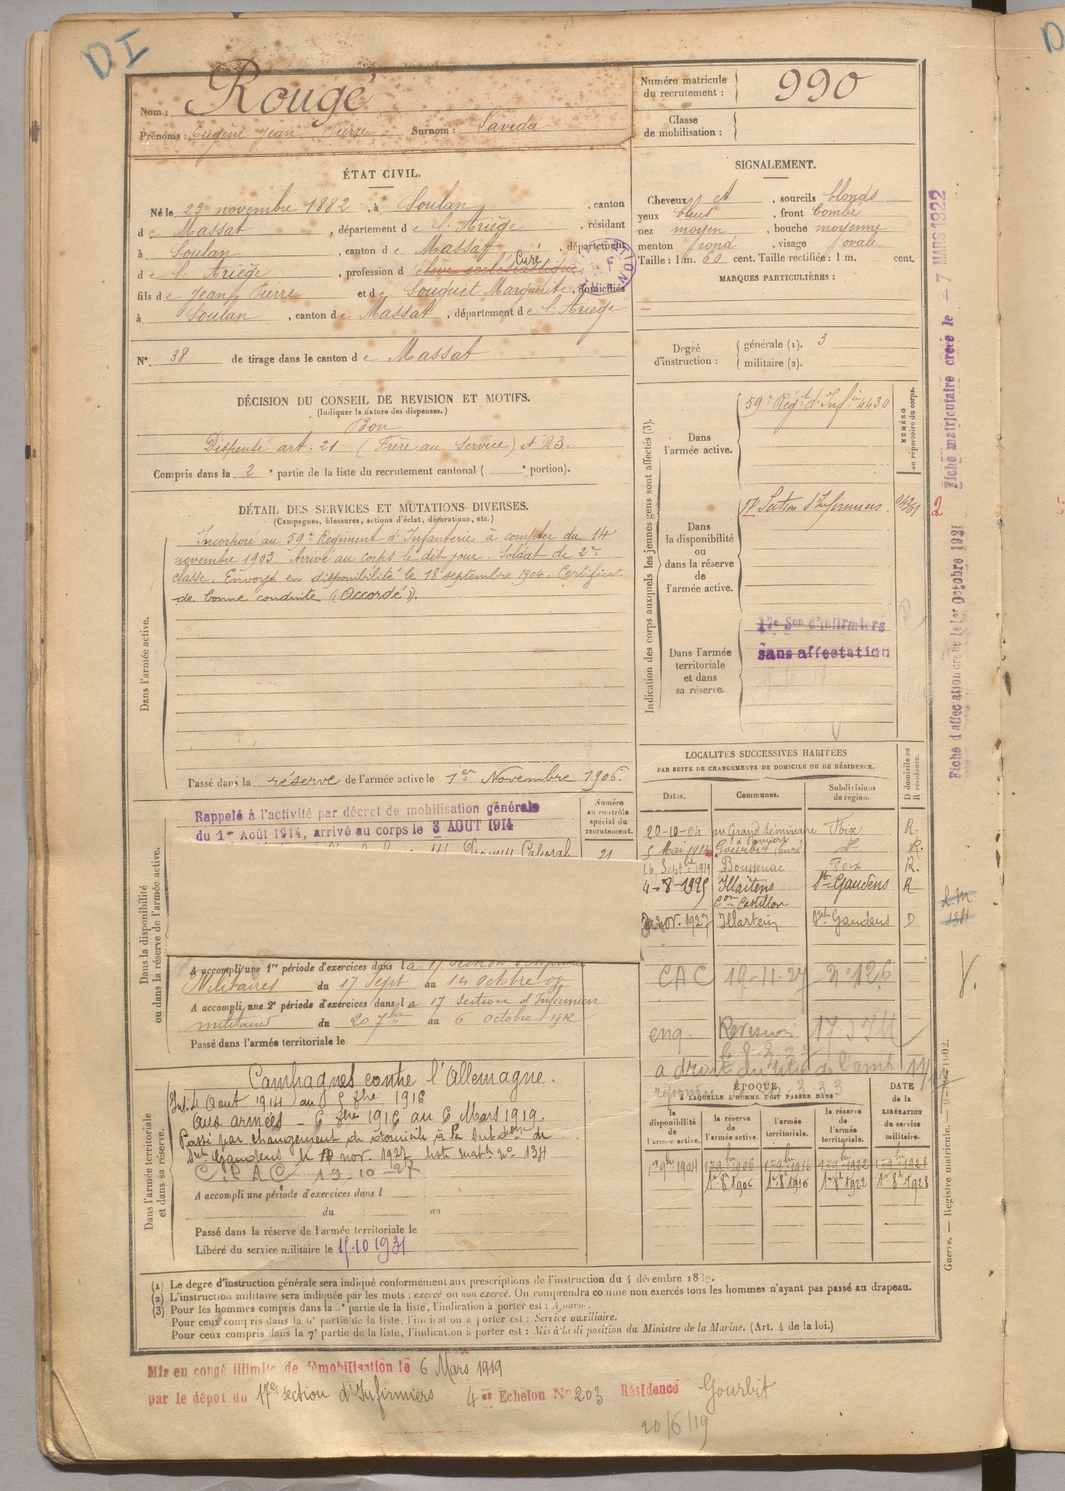 DI
Nom : Rougé
Prénoms : Eugène Jean Pierre Surnom : Laveda
Numéro matricule
du recrutement : 990
Classe
de mobilisation :
ÉTAT CIVIL.
Né le 23 novembre 1882, à Soulan, canton
de Massat, département de l'Ariège, résidant
à Soulan, canton de Massat, département
de l'Ariège, profession d'élève ecclésiastique Curé
fils de Jean Pierre et de Souquet Marguerite, domiciliés
à Soulan, canton de Massat, département de l'Ariège
N° 38 de tirage dans le canton de Massat
SIGNALEMENT.
Cheveux et, sourcils blonds
yeux bleus, front bombé
nez moyen, bouche moyenne
menton rond, visage ovale
Taille : 1 m. 60 cent. Taille rectifiée : 1 m. cent.
MARQUES PARTICULIÈRES :
Degré
d'instruction : générale (1). 3
militaire (2).
DÉCISION DU CONSEIL DE REVISION ET MOTIFS.
(Indiquer la nature des dispenses.)
Bon
Dispensé art. 21 (Frère au Service) A 23.
Compris dans la 2e partie de la liste du recrutement cantonal ( e portion).
DÉTAIL DES SERVICES ET MUTATIONS DIVERSES.
(Campagnes, blessures, actions d'éclat, décorations, etc.)
Dans l'armée active.
Incorporé au 59e Régiment d'Infanterie à compter du 14
novembre 1903. Arrivé au corps le dit jour. Soldat de 2e
classe. Envoyé en disponibilité le 18 septembre 1904. Certificat
de bonne conduite (Accordé).
Passé dans la réserve de l'armée active le 1er Novembre 1906.
Indication des corps auxquels les jeunes gens sont affectés (3).
NUMÉRO
au répertoire du corps.
Dans
l'armée active.
59e Régt d'Infie 4430
Dans
la disponibilité
ou
dans la réserve
de
l'armée active.
17e Section d'Infirmiers.
Dans l'armée
territoriale
et dans
sa réserve.
17e Son d'Infirmiers
sans affectation
Dans la disponibilité
ou dans la réserve de l'armée active.
Rappelé à l'activité par décret de mobilisation générale
du 1er Août 1914, arrivé au corps le 3 AOUT 1914
Numéro
au contrôle
spécial du
recrutement.
21
A accompli une 1re période d'exercices dans la 17 section d'Infirmiers
Militaires du 17 Sept au 14 octobre 09
A accompli une 2e période d'exercices dans la 17 Section d'Infirmiers
militaires du 20 7bre au 6 octobre 1912
Passé dans l'armée territoriale le
LOCALITÉS SUCCESSIVES HABITÉES
PAR SUITE DE CHANGEMENTS DE DOMICILE OU DE RÉSIDENCE.
Dates. Communes. Subdivisions de région. D domicile ou R résidence.
20-10-04 au Grand Séminaire Foix R.
5 Mai 1914 Gourbit (curé) R.
16 Septbre 1919 Boussenac Foix R.
4-8-1925 Illartein St Gaudens R
Con Castillon
nov. 1927 Illartein St Gaudens D
CAC 19-11-27 n° 126
Dans l'armée territoriale
et dans sa réserve.
Campagnes contre l'Allemagne.
Int. 4 Aout 1914 au 5 fbre 1916
Aux armées - 6 fbre 1916 au 6 Mars 1919.
Passé par changement de domicile à la Subdon de
St Gaudens le nov. 1927 liste matle no 134
C.P.A.C 19-10-27
A accompli une période d'exercices dans l
du au
Passé dans la réserve de l'armée territoriale le
Libéré du service militaire le 15.10 1931
ÉPOQUE
A LAQUELLE L'HOMME DOIT PASSER DANS
la disponibilité de l'armée active. la réserve de l'armée active. l'armée territoriale. la réserve de l'armée territoriale. DATE de la LIBÉRATION du service militaire.
1er 9bre 1904 1er 9bre 1906 1er 9bre 1916 1er 9bre 1922 1er 9bre 1928
1er 8bre 1906 1er 8bre 1916 1er 8bre 1922 1er 8bre 1928
(1) Le degré d'instruction générale sera indiqué conformément aux prescriptions de l'instruction du 4 décembre 1889.
(2) L'instruction militaire sera indiquée par les mots : exercé ou non exercé. On comprendra comme non exercés tous les hommes n'ayant pas passé au drapeau.
(3) Pour les hommes compris dans la 5e partie de la liste, l'indication à porter est : Ajourné.
Pour ceux compris dans la 6e partie de la liste, l'indication à porter est : Service auxiliaire.
Pour ceux compris dans la 7e partie de la liste, l'indication à porter est : Mis à la disposition du Ministre de la Marine. (Art. 4 de la loi.)
Mis en congé illimité de démobilisation le 6 Mars 1919
par le dépot du 17e section d'Infirmiers 4e Echelon N° 203 Résidence Gourbit
20/6/19
Fiche d'affectation créée le 1er Octobre 1921
Fiche matriculaire créée le - 7 MARS 1922
Guerre. — Registre matricule. — 1902.